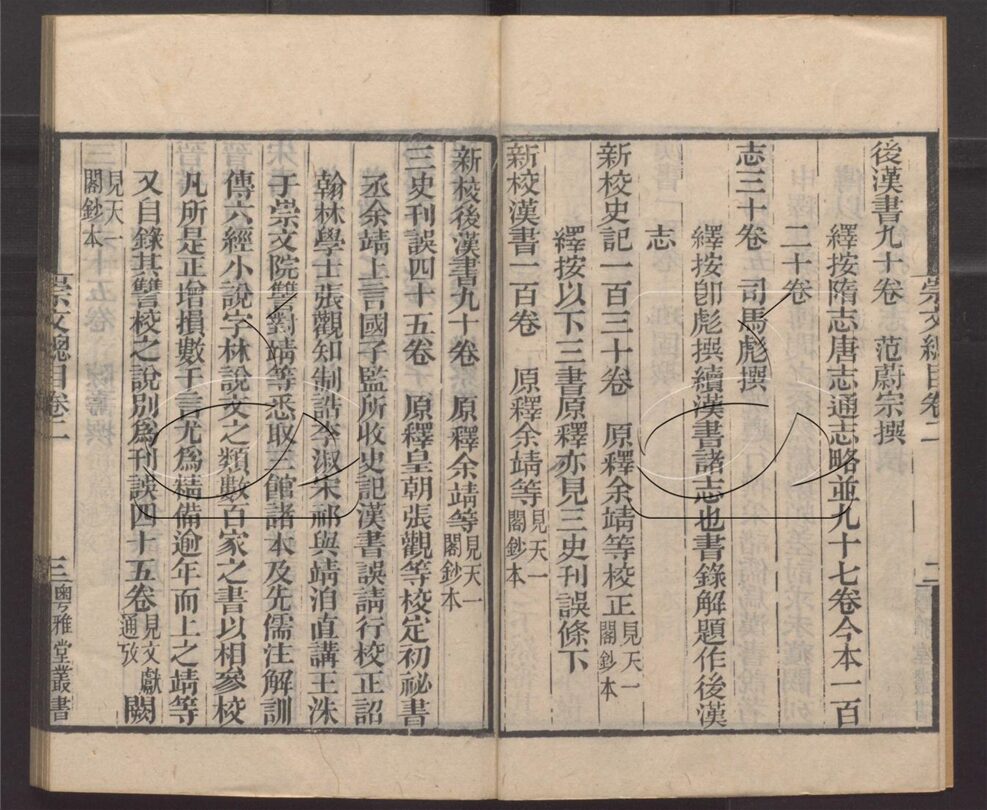 崇文總目卷二
二
後漢書九十卷 范蔚宗撰
繹按隋志唐志通志略並九十七卷今本一百
二十卷
志三十卷 司馬彪撰
繹按卽彪撰續漢書諸志也書錄解題作後漢
志
新校史記一百三十卷 原釋余靖等校正見天一閣鈔本
繹按以下三書原釋亦見三史刊誤條下
新校漢書一百卷 原釋余靖等見天一閣鈔本
新校後漢書九十卷 原釋余靖等見天一閣鈔本
三史刊誤四十五卷 原釋皇朝張觀等校定初祕書
丞余靖上言國子監所收史記漢書誤請行校正詔
翰林學士張觀知制誥李淑宋祁與靖洎直講王洙
于崇文院讐對靖等悉取三館諸本及先儒注解訓
傳六經小說字林說文之類數百家之書以相參校
凡所是正增損數千言尤爲精備逾年而上之靖等
又自錄其讐校之說別爲刊誤四十五卷見文獻通攷 闕
見天一閣鈔本
崇文總目卷二
三
粵雅堂叢書